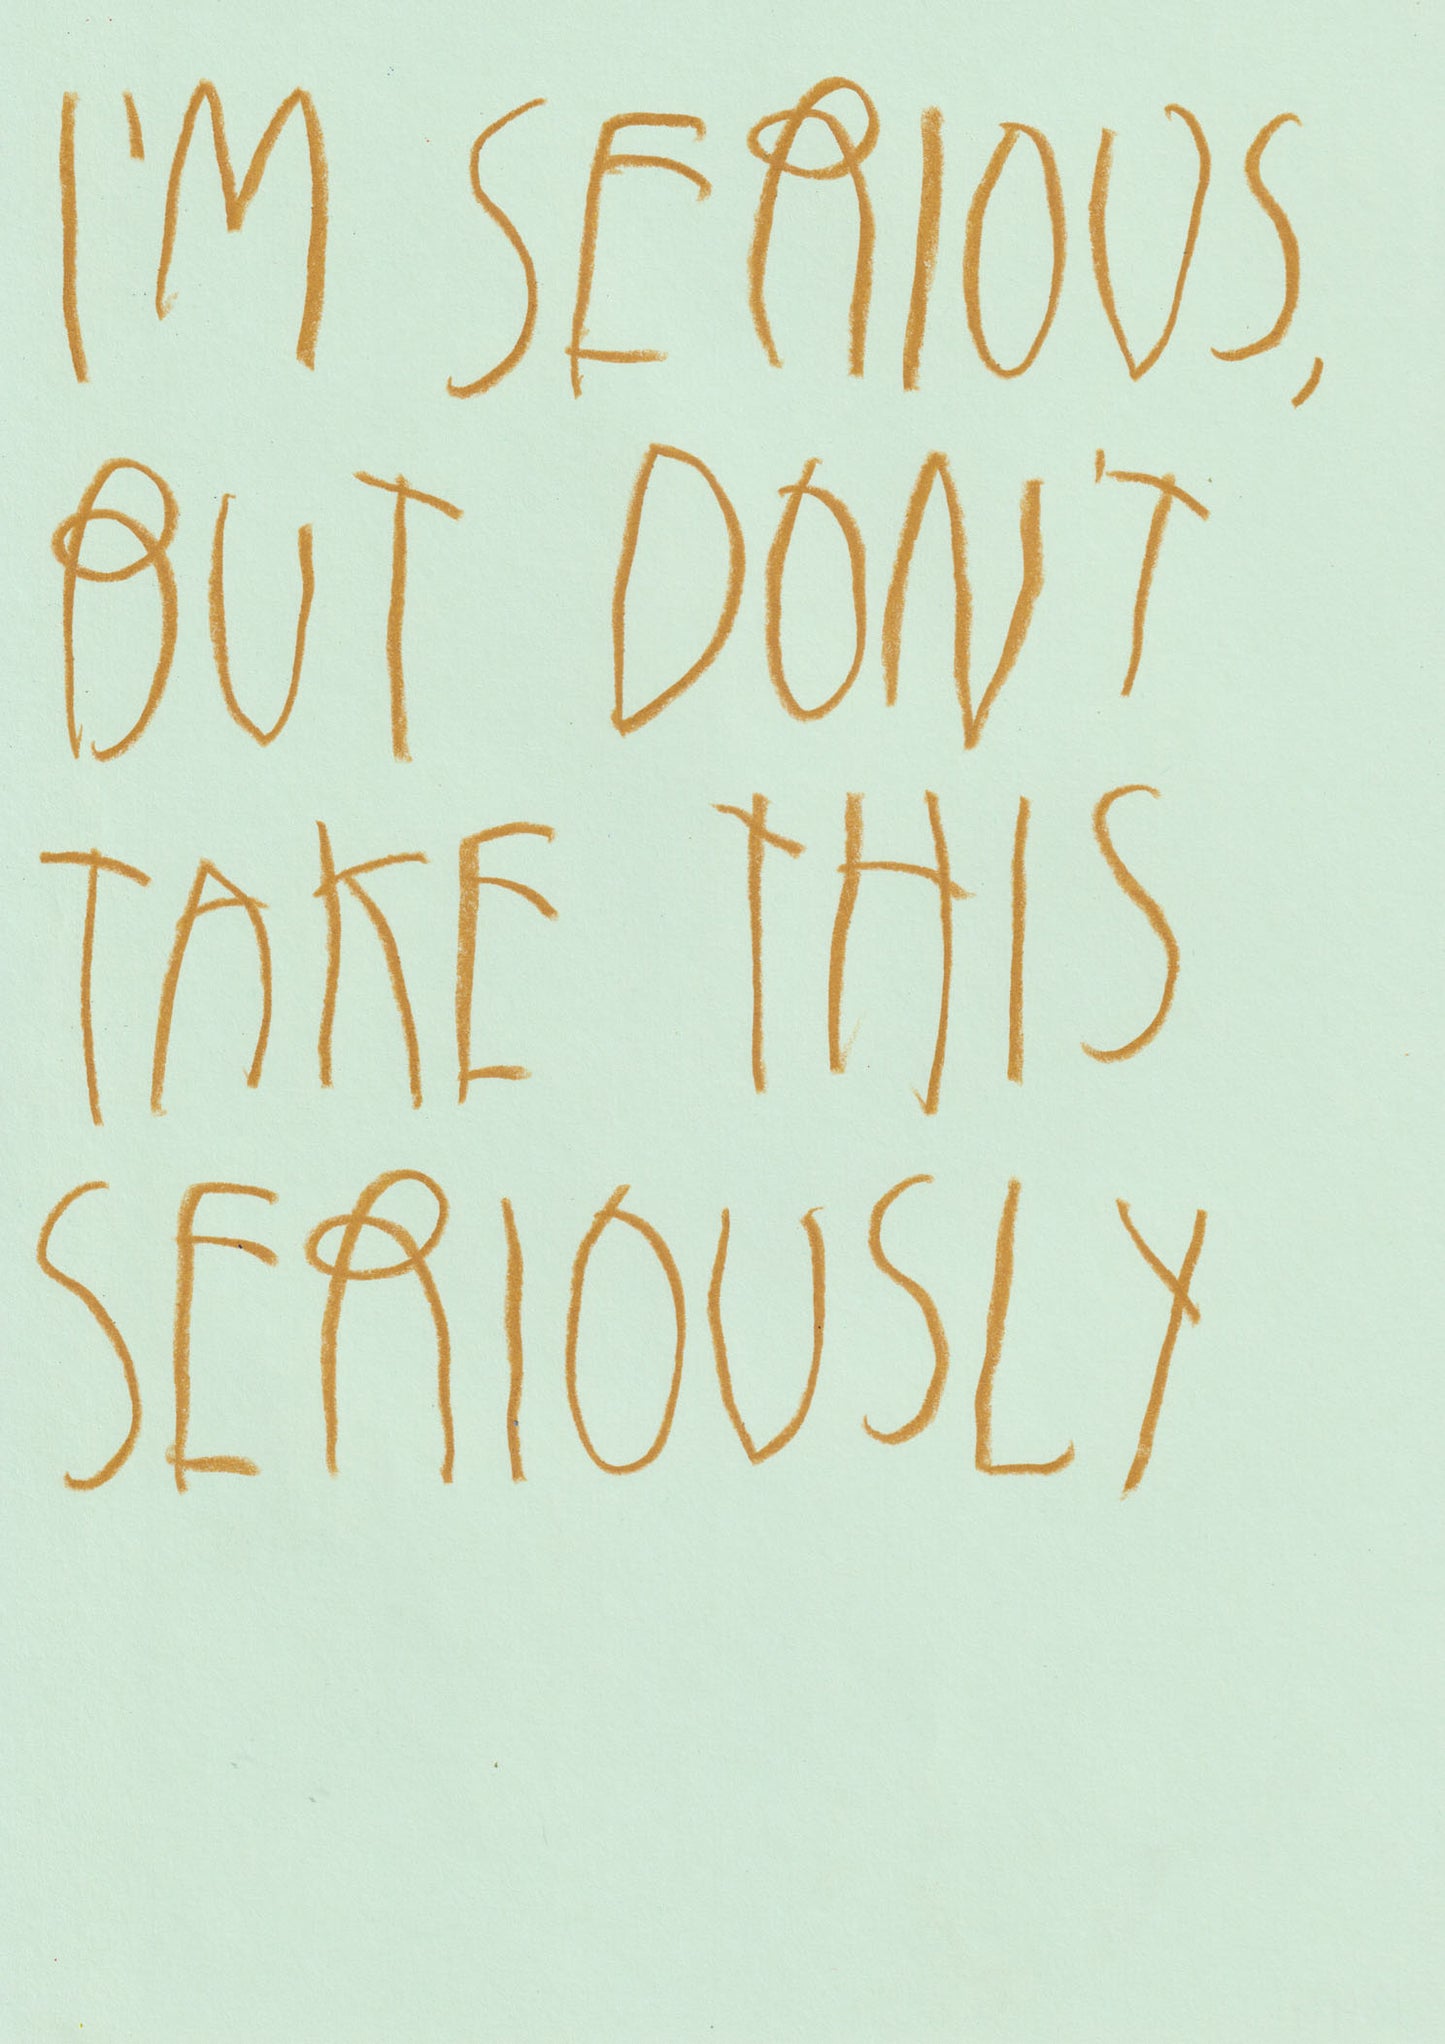 I'M SERIOUS,
BUT DON'T
TAKE THIS
SERIOUSLY